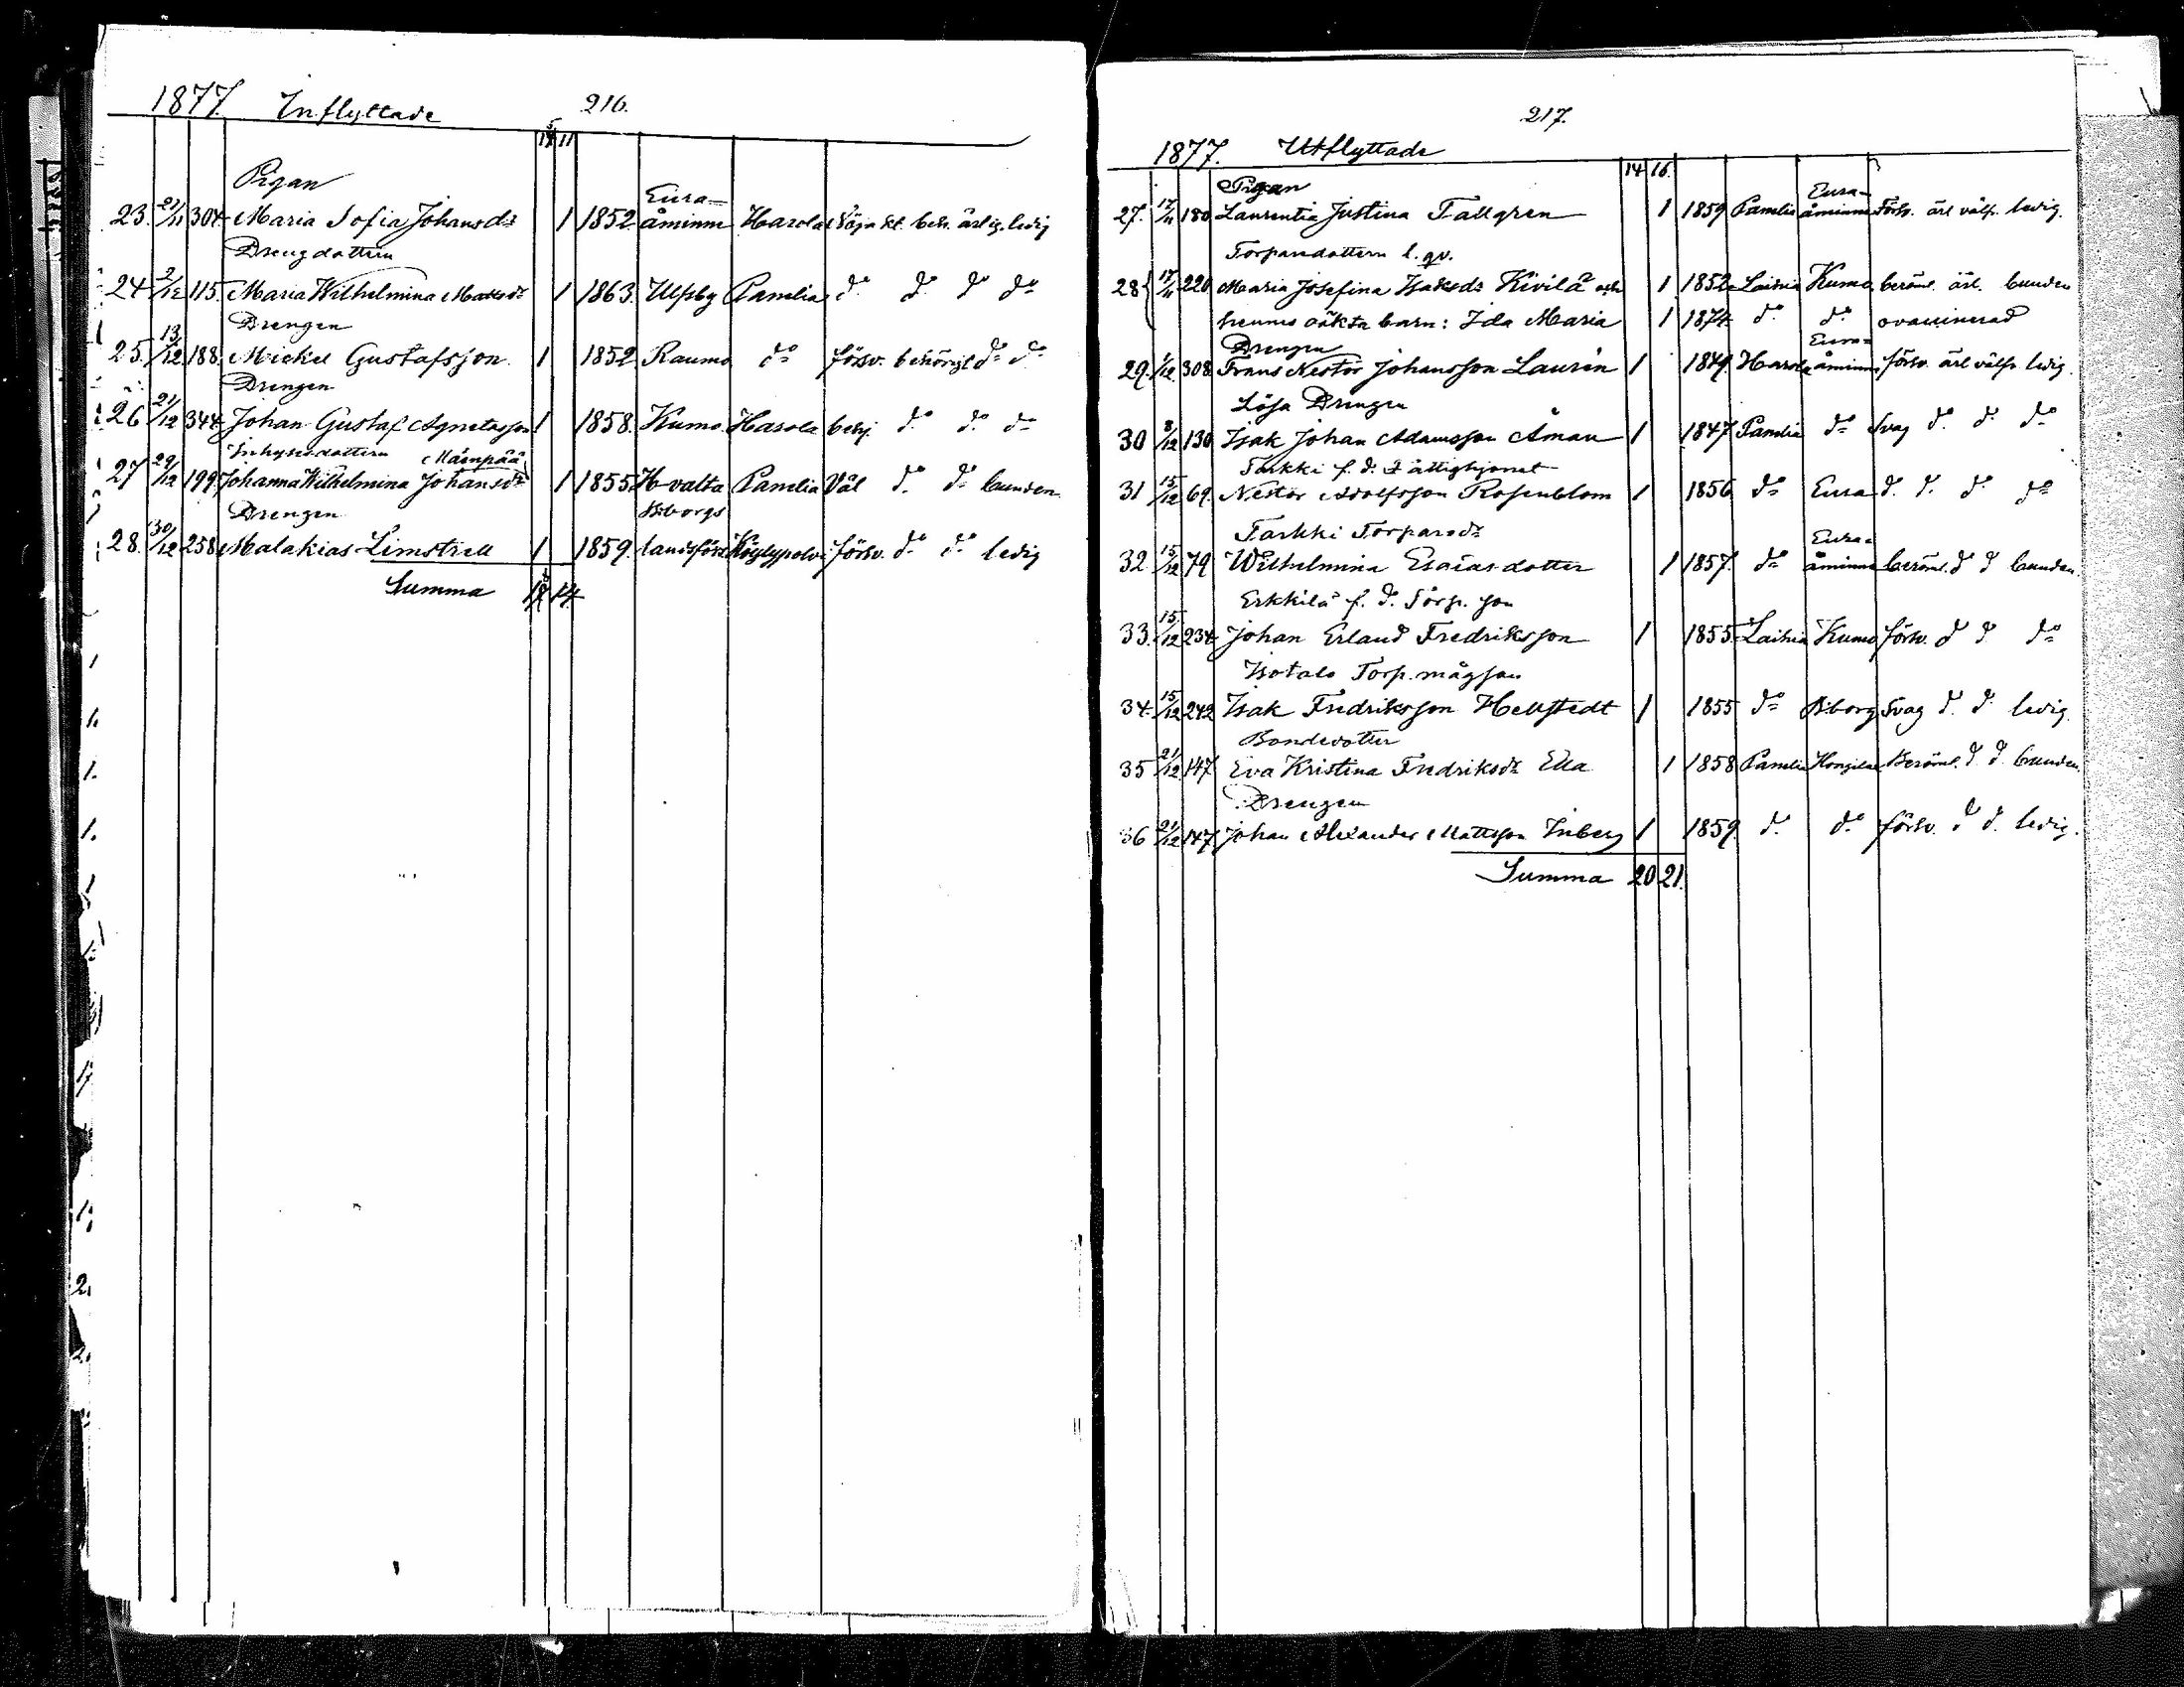 1877. Inflyttade 216.
11
Pigan Eura-
23. 21/11 304 Maria Sofia Johansdr 1 1852 åminne Harola Nöjakt. beh. ärlig. ledig
Drengdottern
24 2/12 115. Maria Wilhelmina Mattsdr 1 1863. Ulfsby Panelia do do do do
Drengen
25. 13/12 188. Mickel Gustafsson 1 1852 Raumo do försv. behörigt do do
Drengen
26 21/12 344 Johan Gustaf Agnetasson 1 1858. Kumo Harola behj do do do
Inhysesdottern Mäenpää
27 29/12 199. Johanna Wilhelmina Johansdr 1 1855 H-valta Panelia Väl do do bunden
Drengen Bborgs
28. 30/12 258 Malakias Limstrell 1 1859. landsförs. Köylypolvi försv. do do ledig
Summa 14
217.
1877. Utflyttade
14 16.
Pigan Eura-
27. 17/11 180 Laurentia Justina Tallgren 1 1859 Panelia åminne Försv. ärl välfr. ledig.
Torparedottern l. qv.
28 17/11 220 Maria Josefina Isaksdr Kivilä och 1 1852 Laihia Kumo beröml. ärl. bunden
hennes oäkta barn: Ida Maria 1 1874 do do ovaccinerad
Drengen Eura-
29. 1/12 308. Frans Nestor Johansson Laurén 1 1849. Harola åminne försv. ärl välfr ledig.
Lösa Drengen
30 8/12 130 Isak Johan Adamsson Åman 1 1847 Panelia do Svag do do do
Tarkki f. d. Fattighjonet
31 15/12 69. Nestor Adolfsson Rosenblom 1 1856 do Eura do do do do
Tarkki Torparedr Eura-
32. 15/12 79 Wilhelmina Esaiasdotter 1 1857. do åminne beröml. do do bunden.
Erkkilä f. d. Torp. son
33. 15/12 234 Johan Erland Fredriksson 1 1855 Laihia Kumo försv. do do do
Isotalo Torp. mågson
34. 15/12 242 Isak Fredriksson Hellstedt 1 1855 do Bborg Svag do do ledig.
Bondedotter
35 21/12 147 Eva Kristina Fredriksdr Ella 1 1858 Panelia Hongilax Beröml. do do bunden.
Drengen
36 21/12 147 Johan Alexander Mattsson Inberg 1 1859. do do försv. do do ledig.
Summa 20 21.